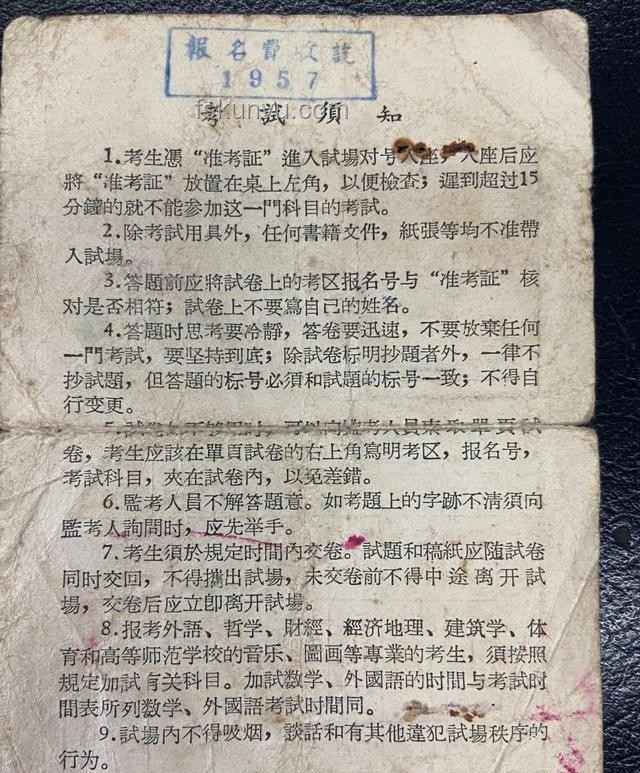 報名費收訖
1957
考試須知
1.考生憑“准考証”進入試場对号入座,入座后应
將“准考証”放置在桌上左角，以便檢查；遲到超过15
分鐘的就不能参加这一門科目的考試。
2.除考試用具外，任何書籍文件，紙張等均不准帶
入試場。
3.答題前应將試卷上的考区报名号与“准考証”核
对是否相符；試卷上不要寫自己的姓名。
4.答題时思考要冷靜，答卷要迅速，不要放棄任何
一門考試，要坚持到底；除試卷标明抄題者外，一律不
抄試題，但答題的标号必須和試題的标号一致；不得自
行变更。
5.試卷如不够用时，可以向監考人員索取單頁試
卷，考生应該在單頁試卷的右上角寫明考区，报名号，
考試科目，夾在試卷內，以免差錯。
6.監考人員不解答題意。如考題上的字跡不清須向
監考人詢問时，应先举手。
7.考生須於規定时間內交卷。試題和稿紙应随試卷
同时交回，不得攜出試場，未交卷前不得中途离开試
場，交卷后应立卽离开試場。
8.报考外語、哲学、財經、經济地理、建筑学、体
育和高等师范学校的音乐、圖画等專業的考生，須按照
規定加試有关科目。加試数学、外國語的时間与考試时
間表所列数学、外國語考試时間同。
9.試場內不得吸烟，談話和有其他違犯試場秩序的
行为。